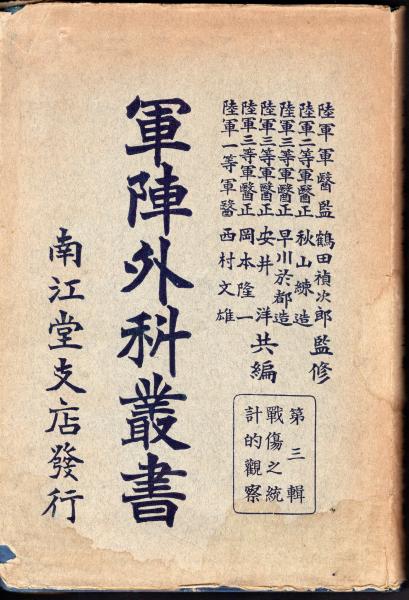 陸軍軍醫監 鶴田禎次郎 監修
陸軍二等軍醫正 秋山錬造
陸軍三等軍醫正 早川於都造
陸軍三等軍醫正 安井洋
陸軍三等軍醫正 岡本隆一
陸軍一等軍醫 西村文雄
共編
第三輯
戰傷之統
計的觀察
軍陣外科叢書
南江堂支店發行